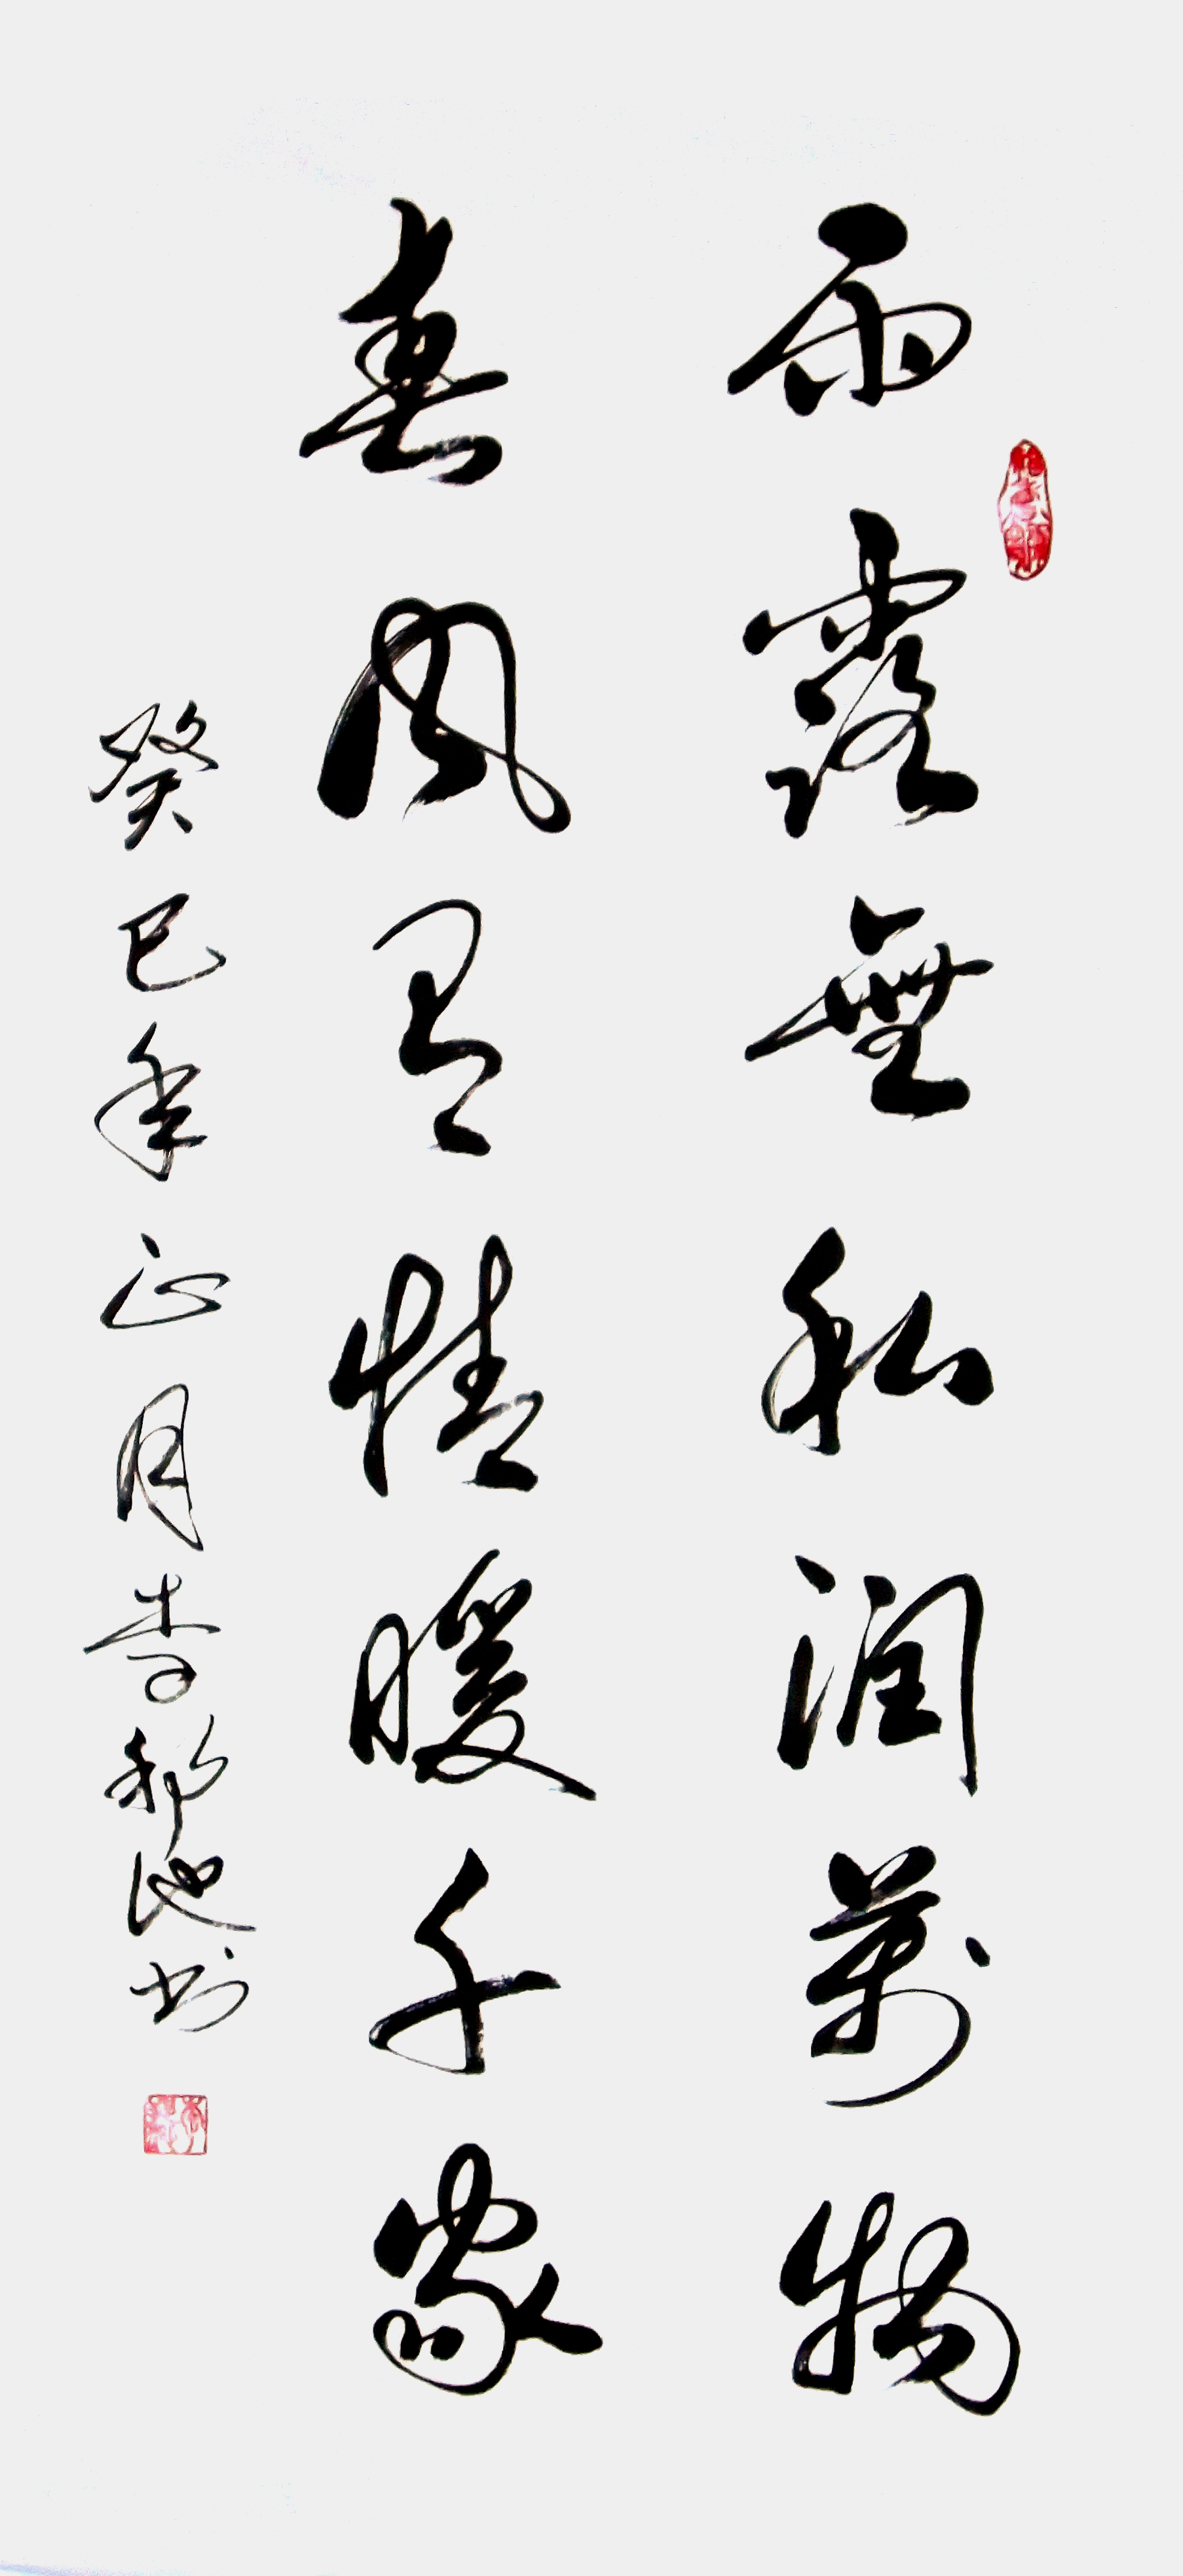 雨露無私润萬物
春風有情暖千家
癸巳年正月李都池书